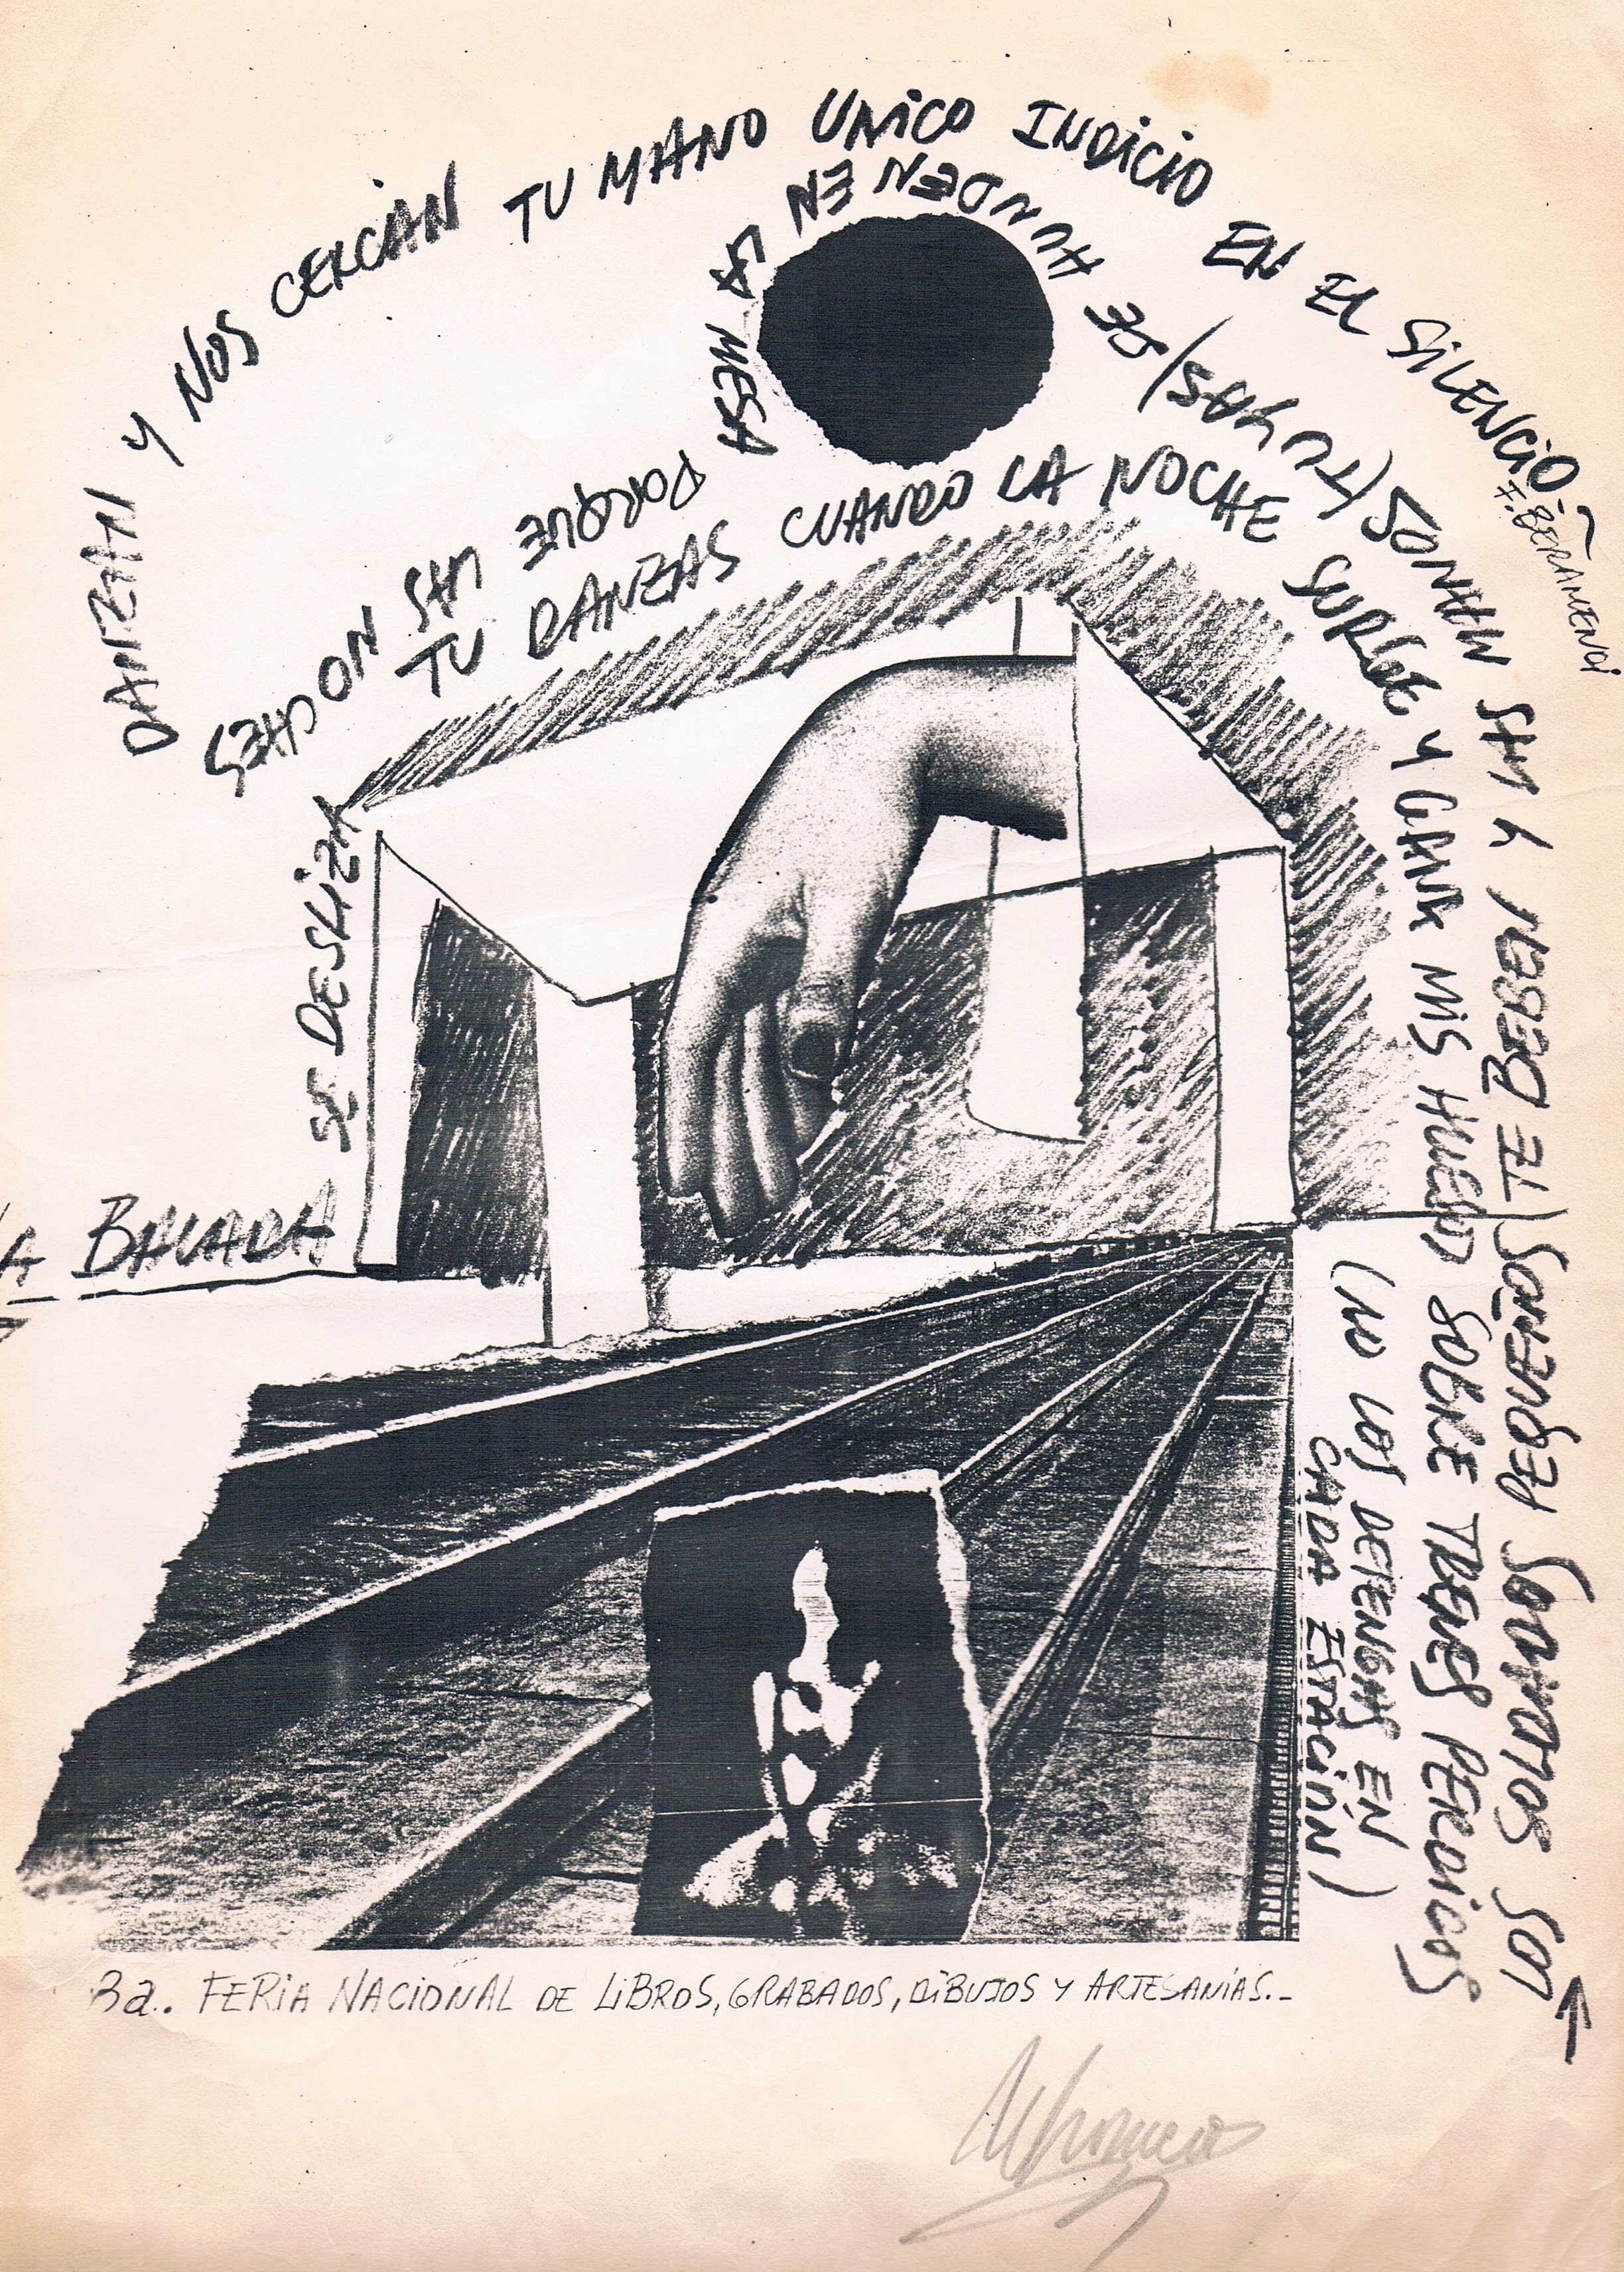 LA BALADA SE DESLIZA
TU DANZAS CUANDO LA NOCHE SURGE Y GANA MIS HUESOS SOBRE TRENES PERDIDOS
(NO LOS DETENGAS EN
CADA ESTACIÓN)
LOS SOLDADOS PEQUEÑOS (TE BEBEN Y LAS MANOS (TUYAS) SE HUNDEN EN LA MESA
PORQUE LAS NOCHES
DANZAN Y NOS CERCAN TU MANO UNICO INDICIO EN EL SILENCIO.-
F. BERAMENDI
3a. FERIA NACIONAL DE LIBROS, GRABADOS, DIBUJOS Y ARTESANIAS.-